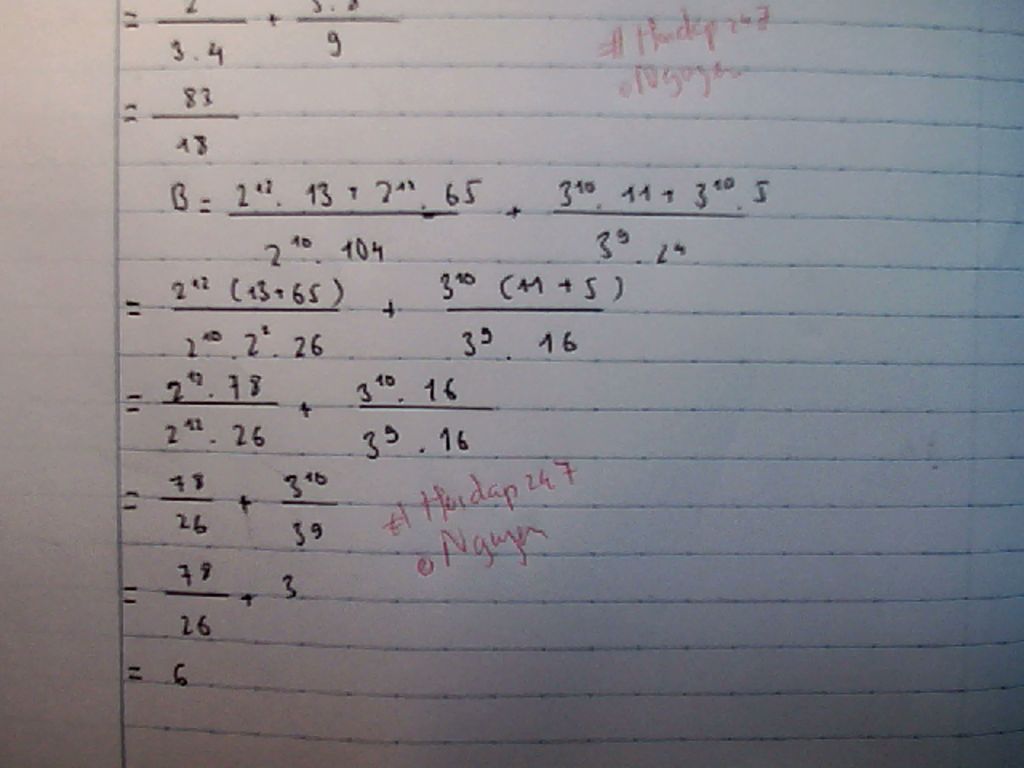 = 2/3.4 + /9
#Hoidap247
Nguyen
= 83/18
B = 2¹².13 + 2¹².65/2¹⁰.104 + 3¹⁰.11 + 3¹⁰.5/3⁹.2⁴
= 2¹²(13+65)/2¹⁰.2².26 + 3¹⁰(11+5)/3⁹.16
= 2¹².78/2¹².26 + 3¹⁰.16/3⁹.16
= 78/26 + 3¹⁰/3⁹
#Hoidap247
Nguyen
= 78/26 + 3
= 6